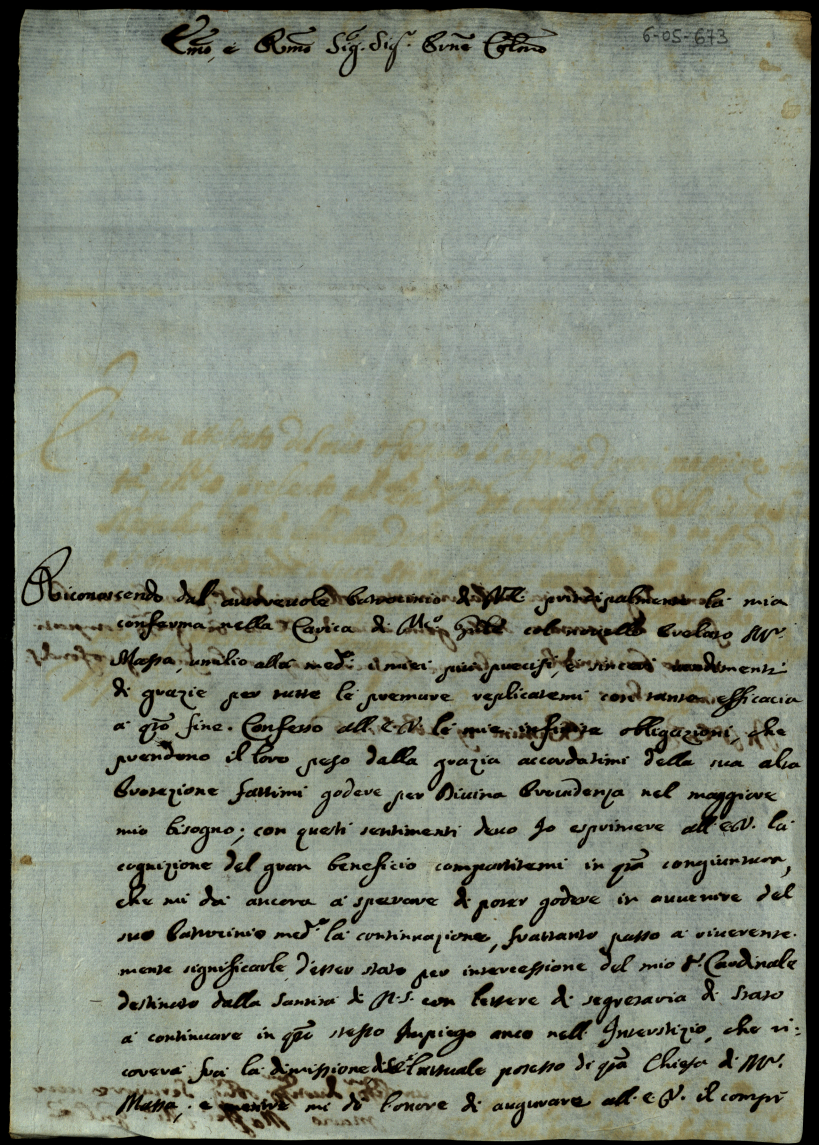 Emo, e Rmo Sig. Sig.r Prne Colmo
6-05-673
Riconoscendo dal autorevole Patrocinio di principalmente la mia
conferma nella Carica di Prelato Mr.
Massa, umilio alla med.a i miei più precisi, e sinceri rendimenti
di grazie per tutte le premure replicatemi con tanta efficacia
a qto fine. Confesso all'E.V. le mie infinite obligazioni, che
prendono il loro peso dalla grazia accordatimi della sua alta
Protezione fattimi godere per Divina Providenza nel maggiore
mio bisogno; con questi sentimenti devo Io esprimere all'E.V. la
cognizione del gran beneficio compartitemi in qta congiuntura,
che mi dà ancora a sperare di poter godere in avvenire del
suo Patrocinio med.o la continuazione, frattanto passo a riverente-
mente significarle, d'esser stato per intercessione del mio S.r Cardinale
destinato dalla Santità di N.S. con lettere di segretaria di Stato
a continuare in qto stesso Impiego anco nell'Interstizio, che ri=
coverà frà la dimissione del l'attuale possesso di qta Chiesa di Mr.
Massa, e mentre mi dò l'onore di augurare all'E.V. il compi